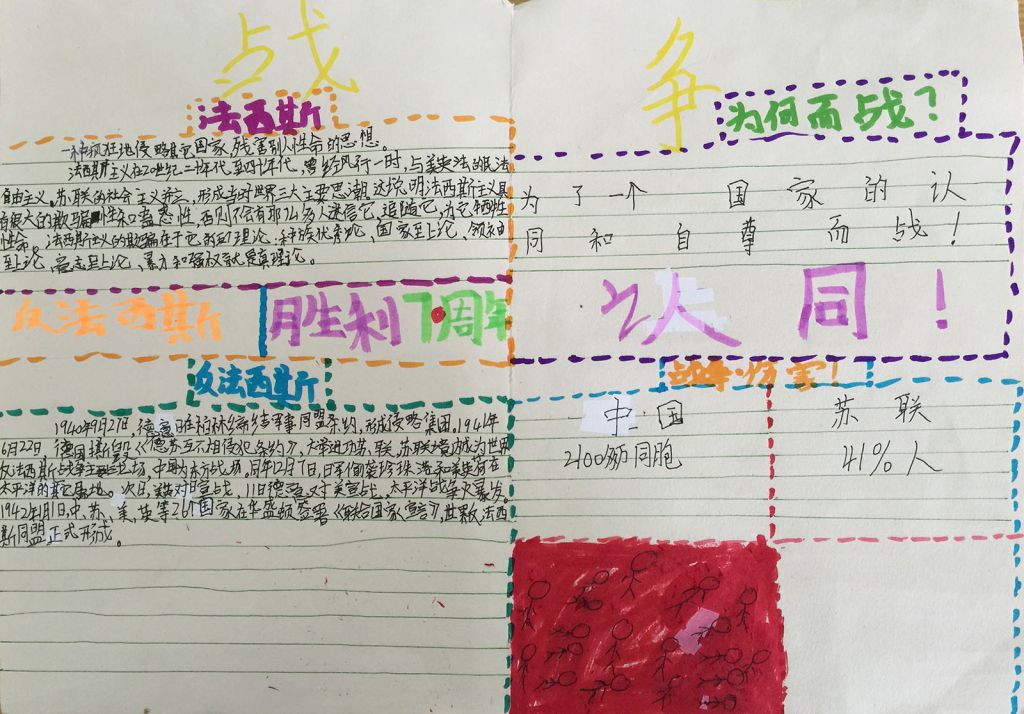 战争
法西斯
一种疯狂地侵略其它国家,残害别人性命的思想。
法西斯主义在20世纪二十年代至四十年代,曾经风行一时,与美英法的民法
自由主义、苏联的社会主义并立,形成当时世界三大主要思潮。这场明法西斯主义具
有很大的欺骗性和蛊惑性,否则不会有那么多人迷信它,追随它,为它牺牲
性命。法西斯主义的欺骗在于它的幻理论:种族优秀论、国家至上论、领袖
至上论、意志至上论、暴力和强权就是真理论。
反法西斯
胜利7周年
反法西斯
1940年9月27日,德意日在柏林缔结军事同盟条约,形成侵略集团。1941年
6月22日,德国撕毁《德苏互不相侵犯条约》,大举进攻苏联,苏联境内成为世界
反法西斯战争主战场,中国为东方战场。同年12月7日,日军偷袭珍珠港和美英荷在
太平洋的其它属地。次日,美英对日宣战,11日德意对美宣战,太平洋战争大暴发。
1942年1月1日,中、苏、美、英等26个国家在华盛顿签署《联合国家宣言》,世界反法西
斯同盟正式形成。
为何而战?
为了一个 国家的认
同和自尊而战!
认同!
战争伤害!
中国
2100万同胞
苏联
41%人